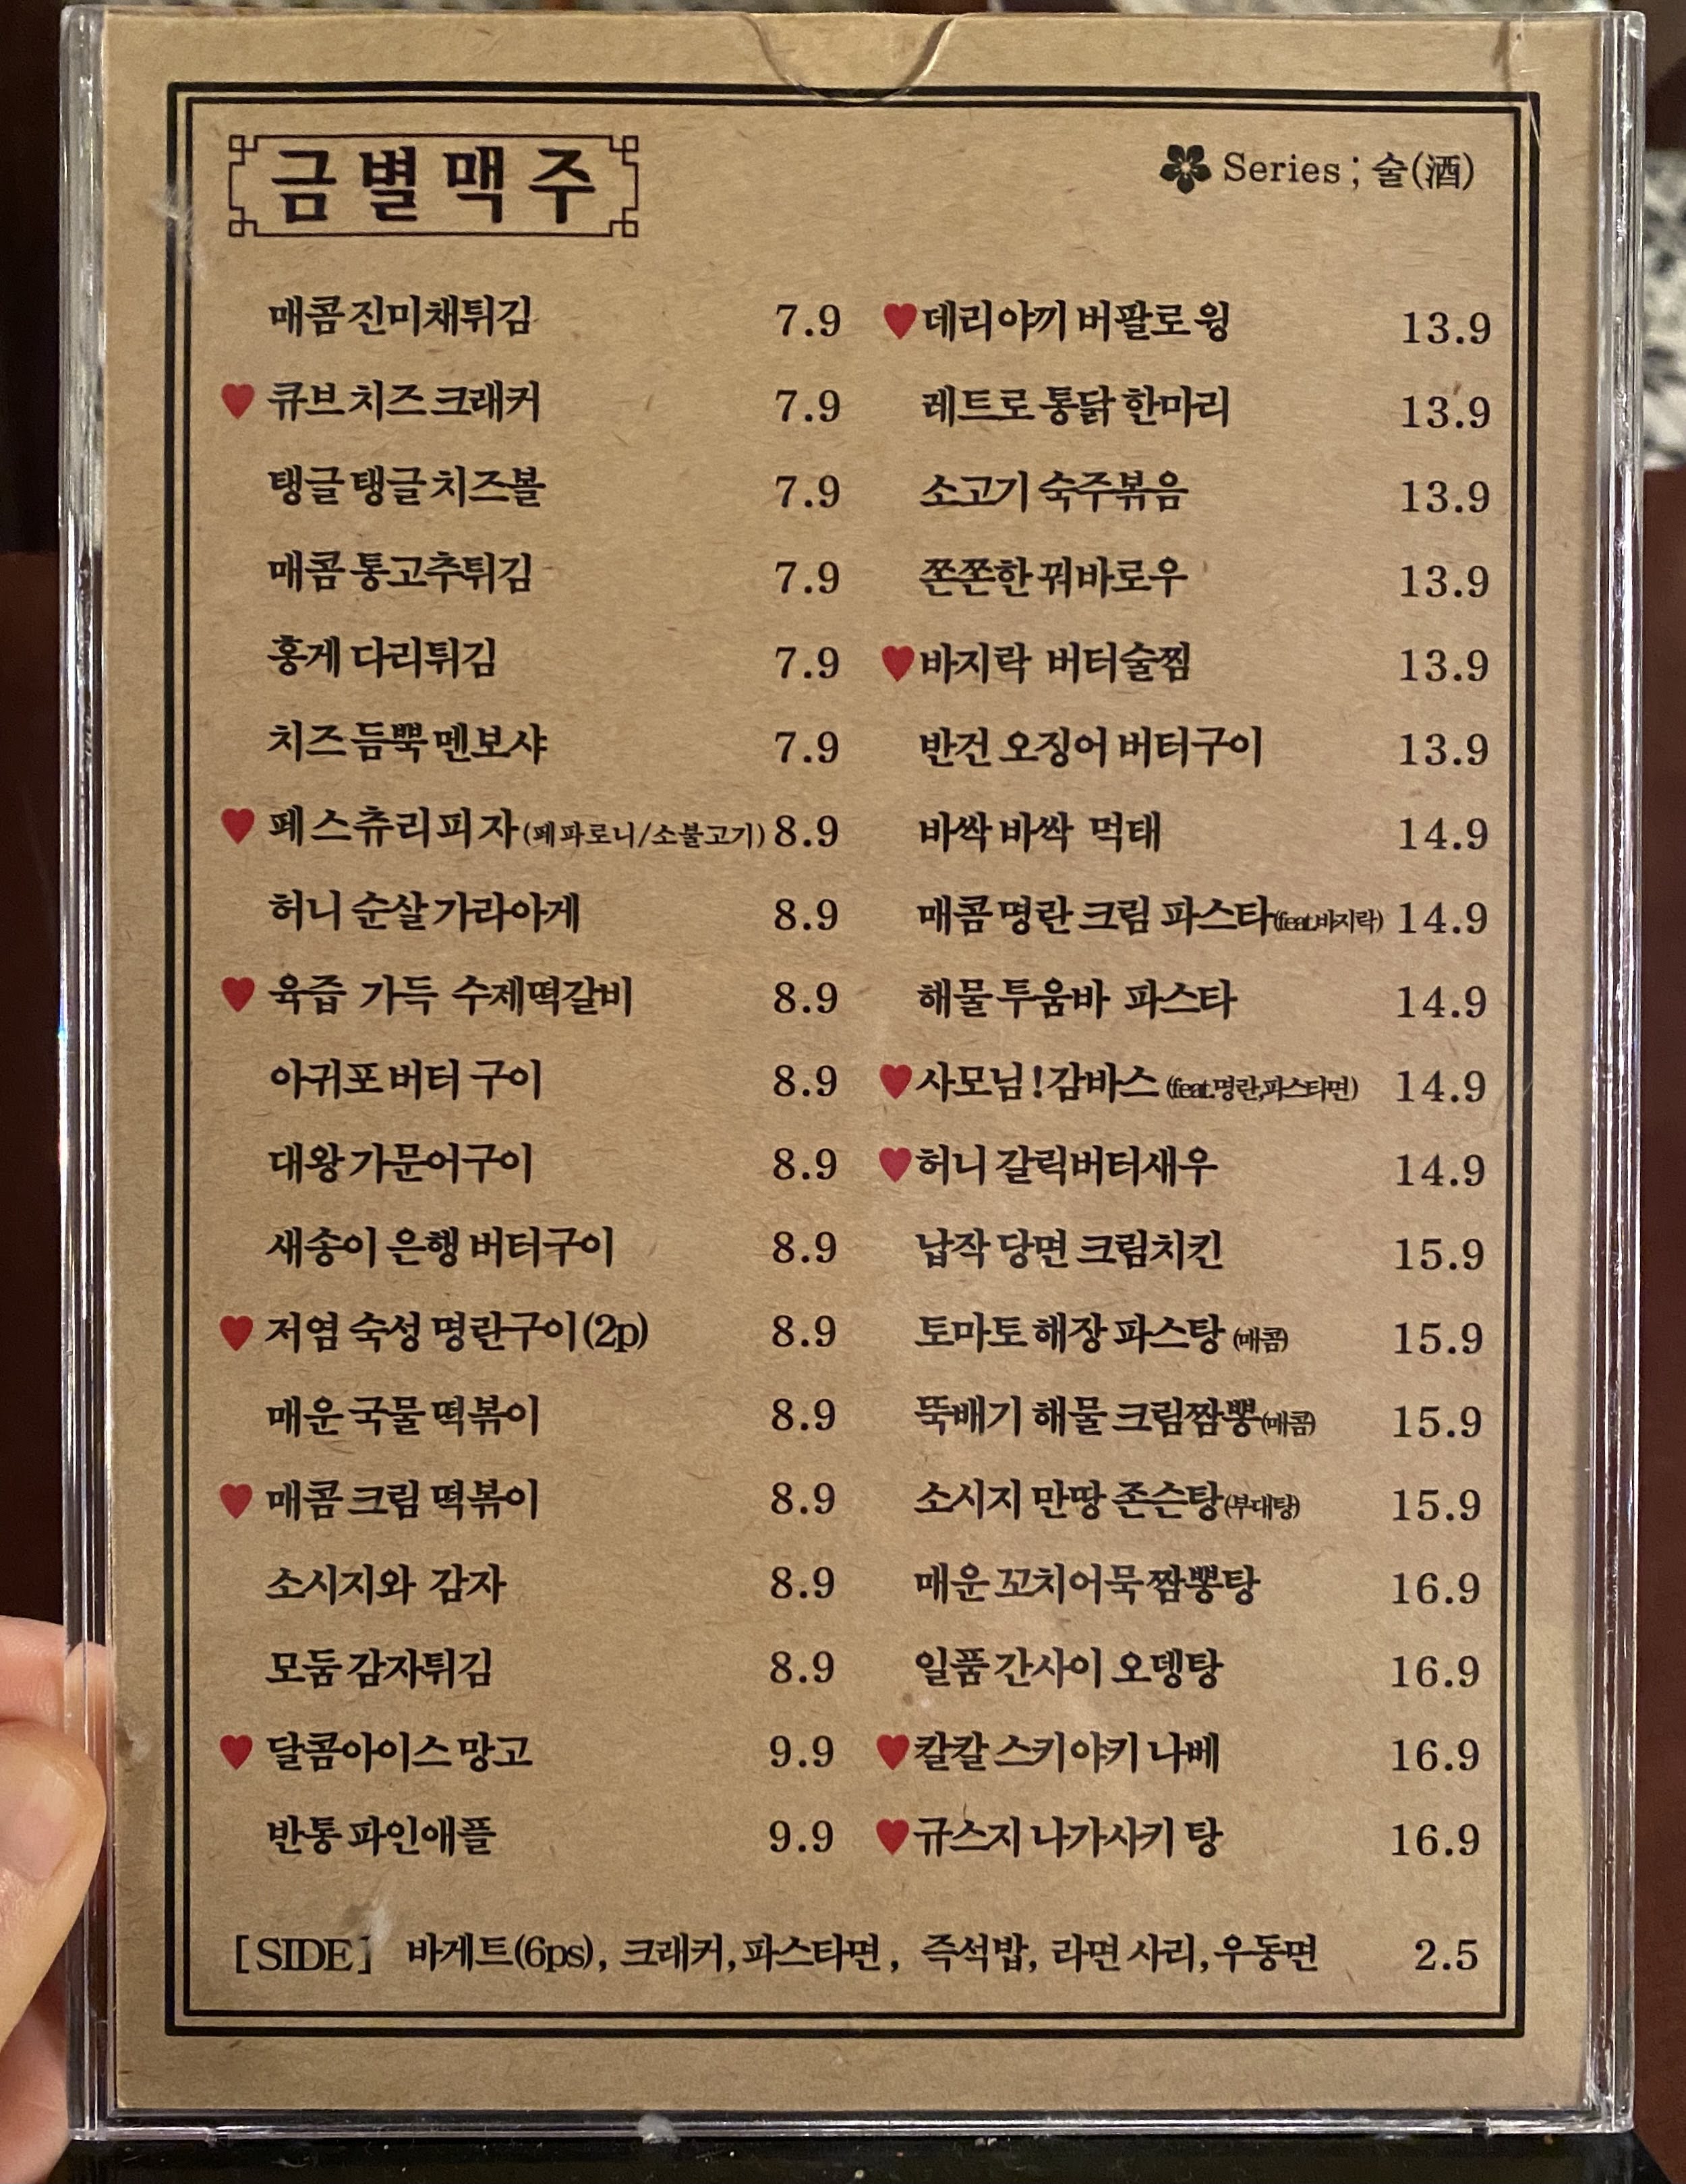 금별맥주
Series ; 술(酒)
매콤 진미채튀김 7.9
♥ 큐브 치즈 크래커 7.9
탱글탱글 치즈볼 7.9
매콤 통고추튀김 7.9
홍게 다리튀김 7.9
치즈 듬뿍 멘보샤 7.9
♥ 페스츄리 피자 (페파로니/소불고기) 8.9
허니 순살 가라아게 8.9
♥ 육즙 가득 수제떡갈비 8.9
아귀포 버터 구이 8.9
대왕 가문어구이 8.9
새송이 은행 버터구이 8.9
♥ 저염 숙성 명란구이 (2p) 8.9
매운 국물 떡볶이 8.9
♥ 매콤 크림 떡볶이 8.9
소시지와 감자 8.9
모둠 감자튀김 8.9
♥ 달콤아이스 망고 9.9
반통 파인애플 9.9
♥ 데리야끼 버팔로 윙 13.9
레트로 통닭 한마리 13.9
소고기 숙주볶음 13.9
쫀쫀한 꿔바로우 13.9
♥ 바지락 버터술찜 13.9
반건 오징어 버터구이 13.9
바싹 바싹 먹태 14.9
매콤 명란 크림 파스타(feat.바지락) 14.9
해물 투움바 파스타 14.9
♥ 사모님! 감바스 (feat.명란,파스타면) 14.9
♥ 허니 갈릭버터새우 14.9
납작 당면 크림치킨 15.9
토마토 해장 파스탕 (매콤) 15.9
뚝배기 해물 크림짬뽕(매콤) 15.9
소시지 만땅 존슨탕(부대탕) 15.9
매운 꼬치어묵 짬뽕탕 16.9
일품 간사이 오뎅탕 16.9
♥ 칼칼 스키야키 나베 16.9
♥ 규스지 나가사키 탕 16.9
[SIDE] 바게트(6ps), 크래커, 파스타면, 즉석밥, 라면 사리, 우동면 2.5